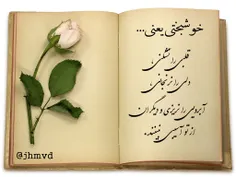 خوشبختی یعنی...
قلبی را نشکنی،
دلی را نرنجانی،
آبرویی را نریزی و دیگران
از تو آسیبی نبینند.
@jhmvd